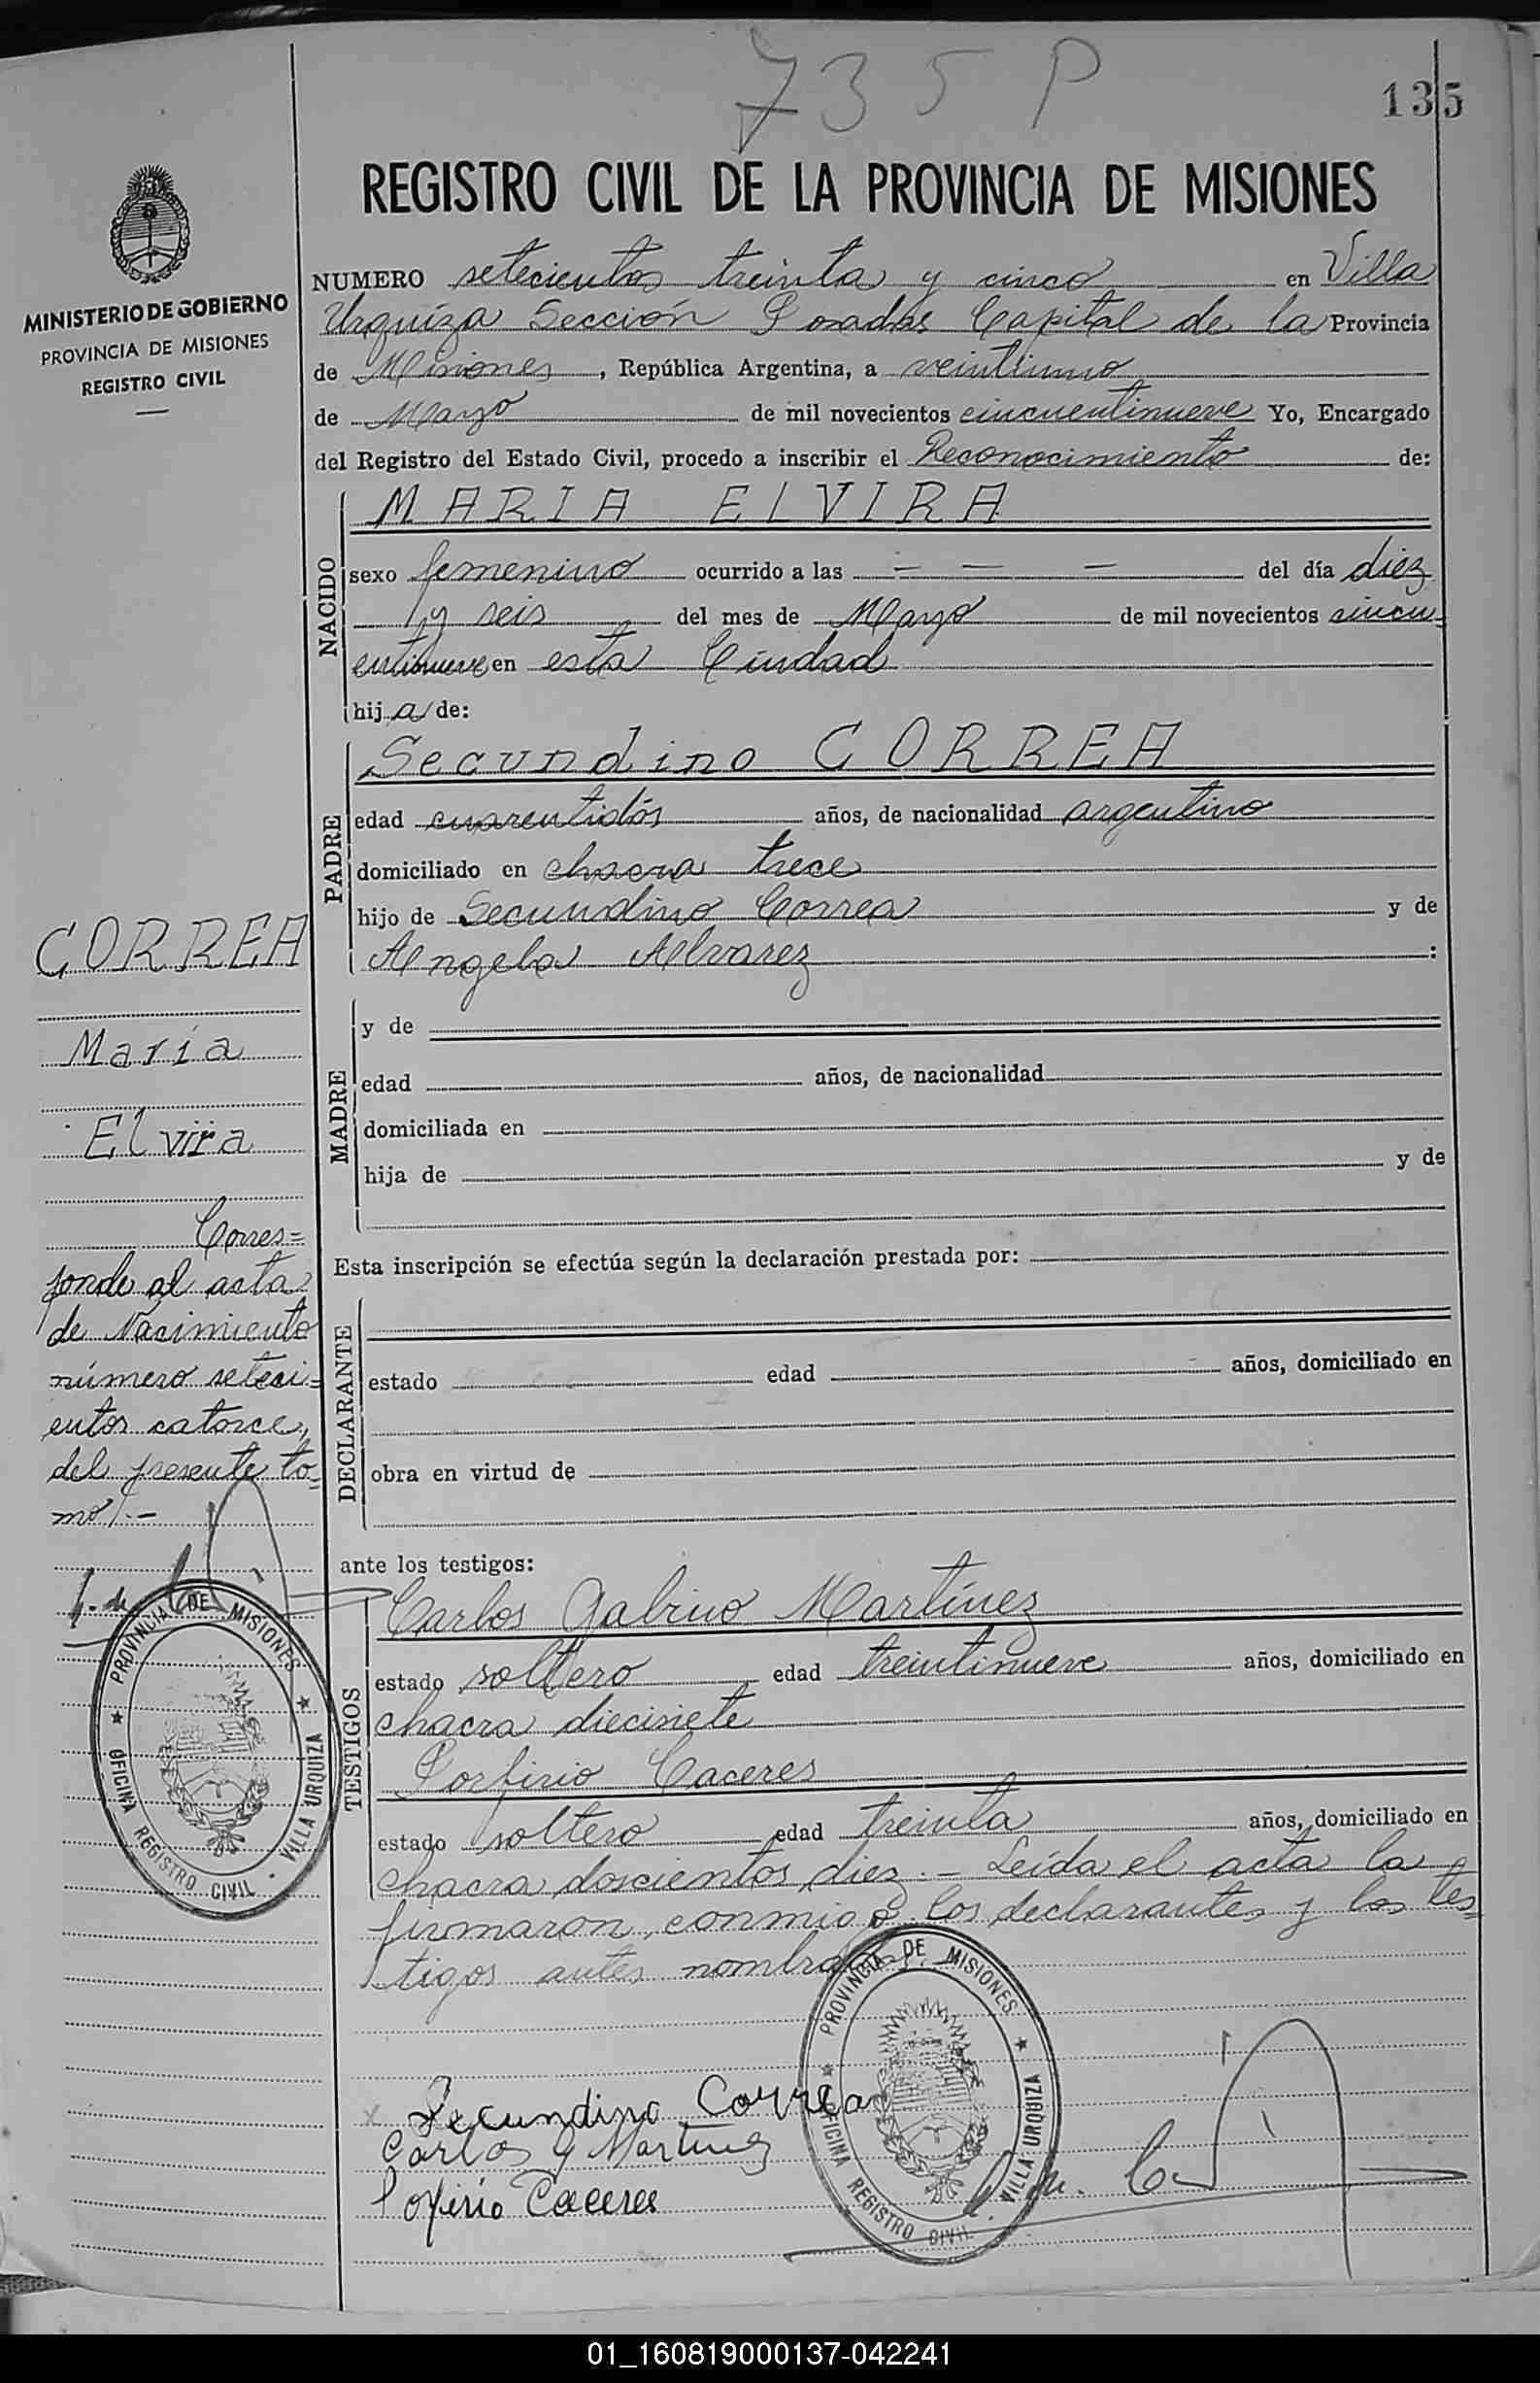 735 P
135
MINISTERIO DE GOBIERNO
PROVINCIA DE MISIONES
REGISTRO CIVIL
REGISTRO CIVIL DE LA PROVINCIA DE MISIONES
NUMERO setecientos treinta y cinco en Villa
Urquiza Sección Posadas Capital de la Provincia
de Misiones, República Argentina, a veintiuno
de Marzo de mil novecientos cincuentinueve Yo, Encargado
del Registro del Estado Civil, procedo a inscribir el Reconocimiento de:
NACIDO
MARIA ELVIRA
sexo femenino ocurrido a las — — — del día diez
y seis del mes de Marzo de mil novecientos cincu=
entinueve en esta Ciudad
hija de:
PADRE
Secundino CORREA
edad cuarentidós años, de nacionalidad argentino
domiciliado en chacra trece
hijo de Secundino Correa y de
Angela Alvarez :
MADRE
y de
edad años, de nacionalidad
domiciliada en
hija de y de
Esta inscripción se efectúa según la declaración prestada por:
DECLARANTE
estado edad años, domiciliado en
obra en virtud de
ante los testigos:
TESTIGOS
Carlos Gabino Martínez
estado soltero edad treintinueve años, domiciliado en
chacra diecisiete
Porfirio Caceres
estado soltero edad treinta años, domiciliado en
chacra doscientos diez.- Leída el acta la
firmaron, conmigo los declarantes y los tes=
tigos antes nombrados.
Secundino Correa
Carlos G Martinez
Porfirio Caceres
PROVINCIA DE MISIONES
OFICINA REGISTRO CIVIL
VILLA URQUIZA
CORREA
María
Elvira
Corres=
ponde al acta
de Nacimiento
número seteci=
entos catorce,
del presente to=
mo.-
PROVINCIA DE MISIONES
OFICINA REGISTRO CIVIL
VILLA URQUIZA
01_160819000137-042241